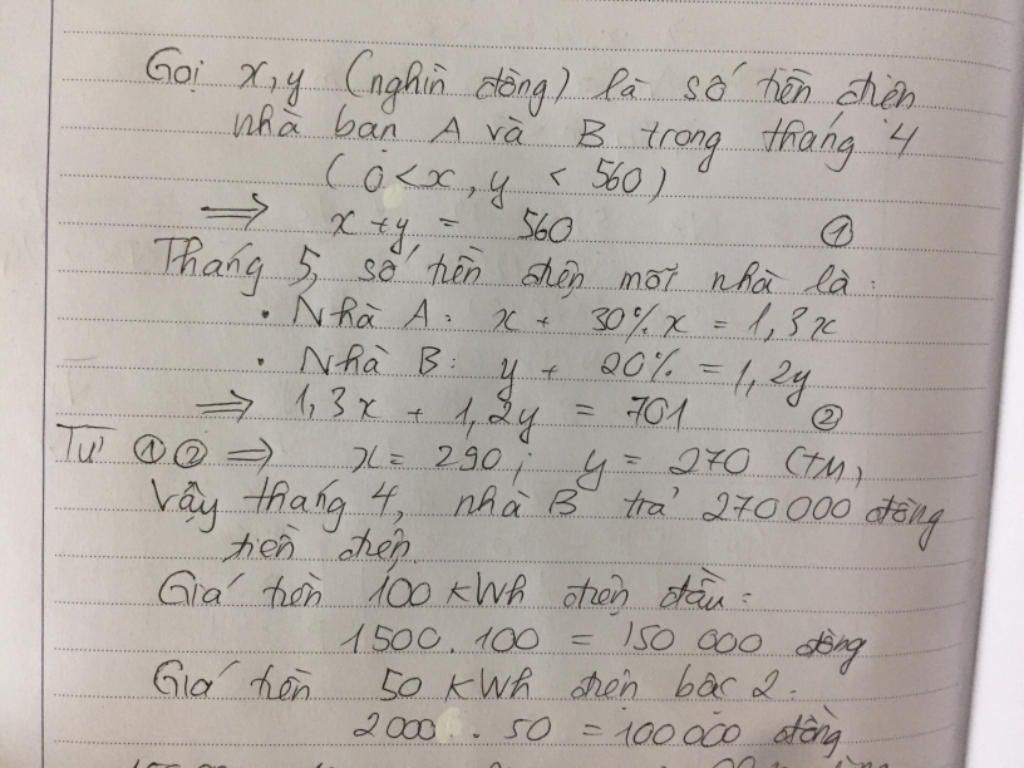 Gọi x, y (nghìn đồng) là số tiền điện
nhà bạn A và B trong tháng 4
( 0 < x, y < 560 )
⇒ x + y = 560 ①
Tháng 5, số tiền điện mỗi nhà là :
• Nhà A : x + 30% x = 1,3x
• Nhà B : y + 20% = 1,2y
⇒ 1,3x + 1,2y = 701 ②
Từ ① ② ⇒ x = 290 ; y = 270 (TM)
Vậy tháng 4, nhà B trả 270 000 đồng
tiền điện.
Giá tiền 100 kWh điện đầu :
1500 . 100 = 150 000 đồng
Giá tiền 50 kWh điện bậc 2 :
2000 . 50 = 100 000 đồng